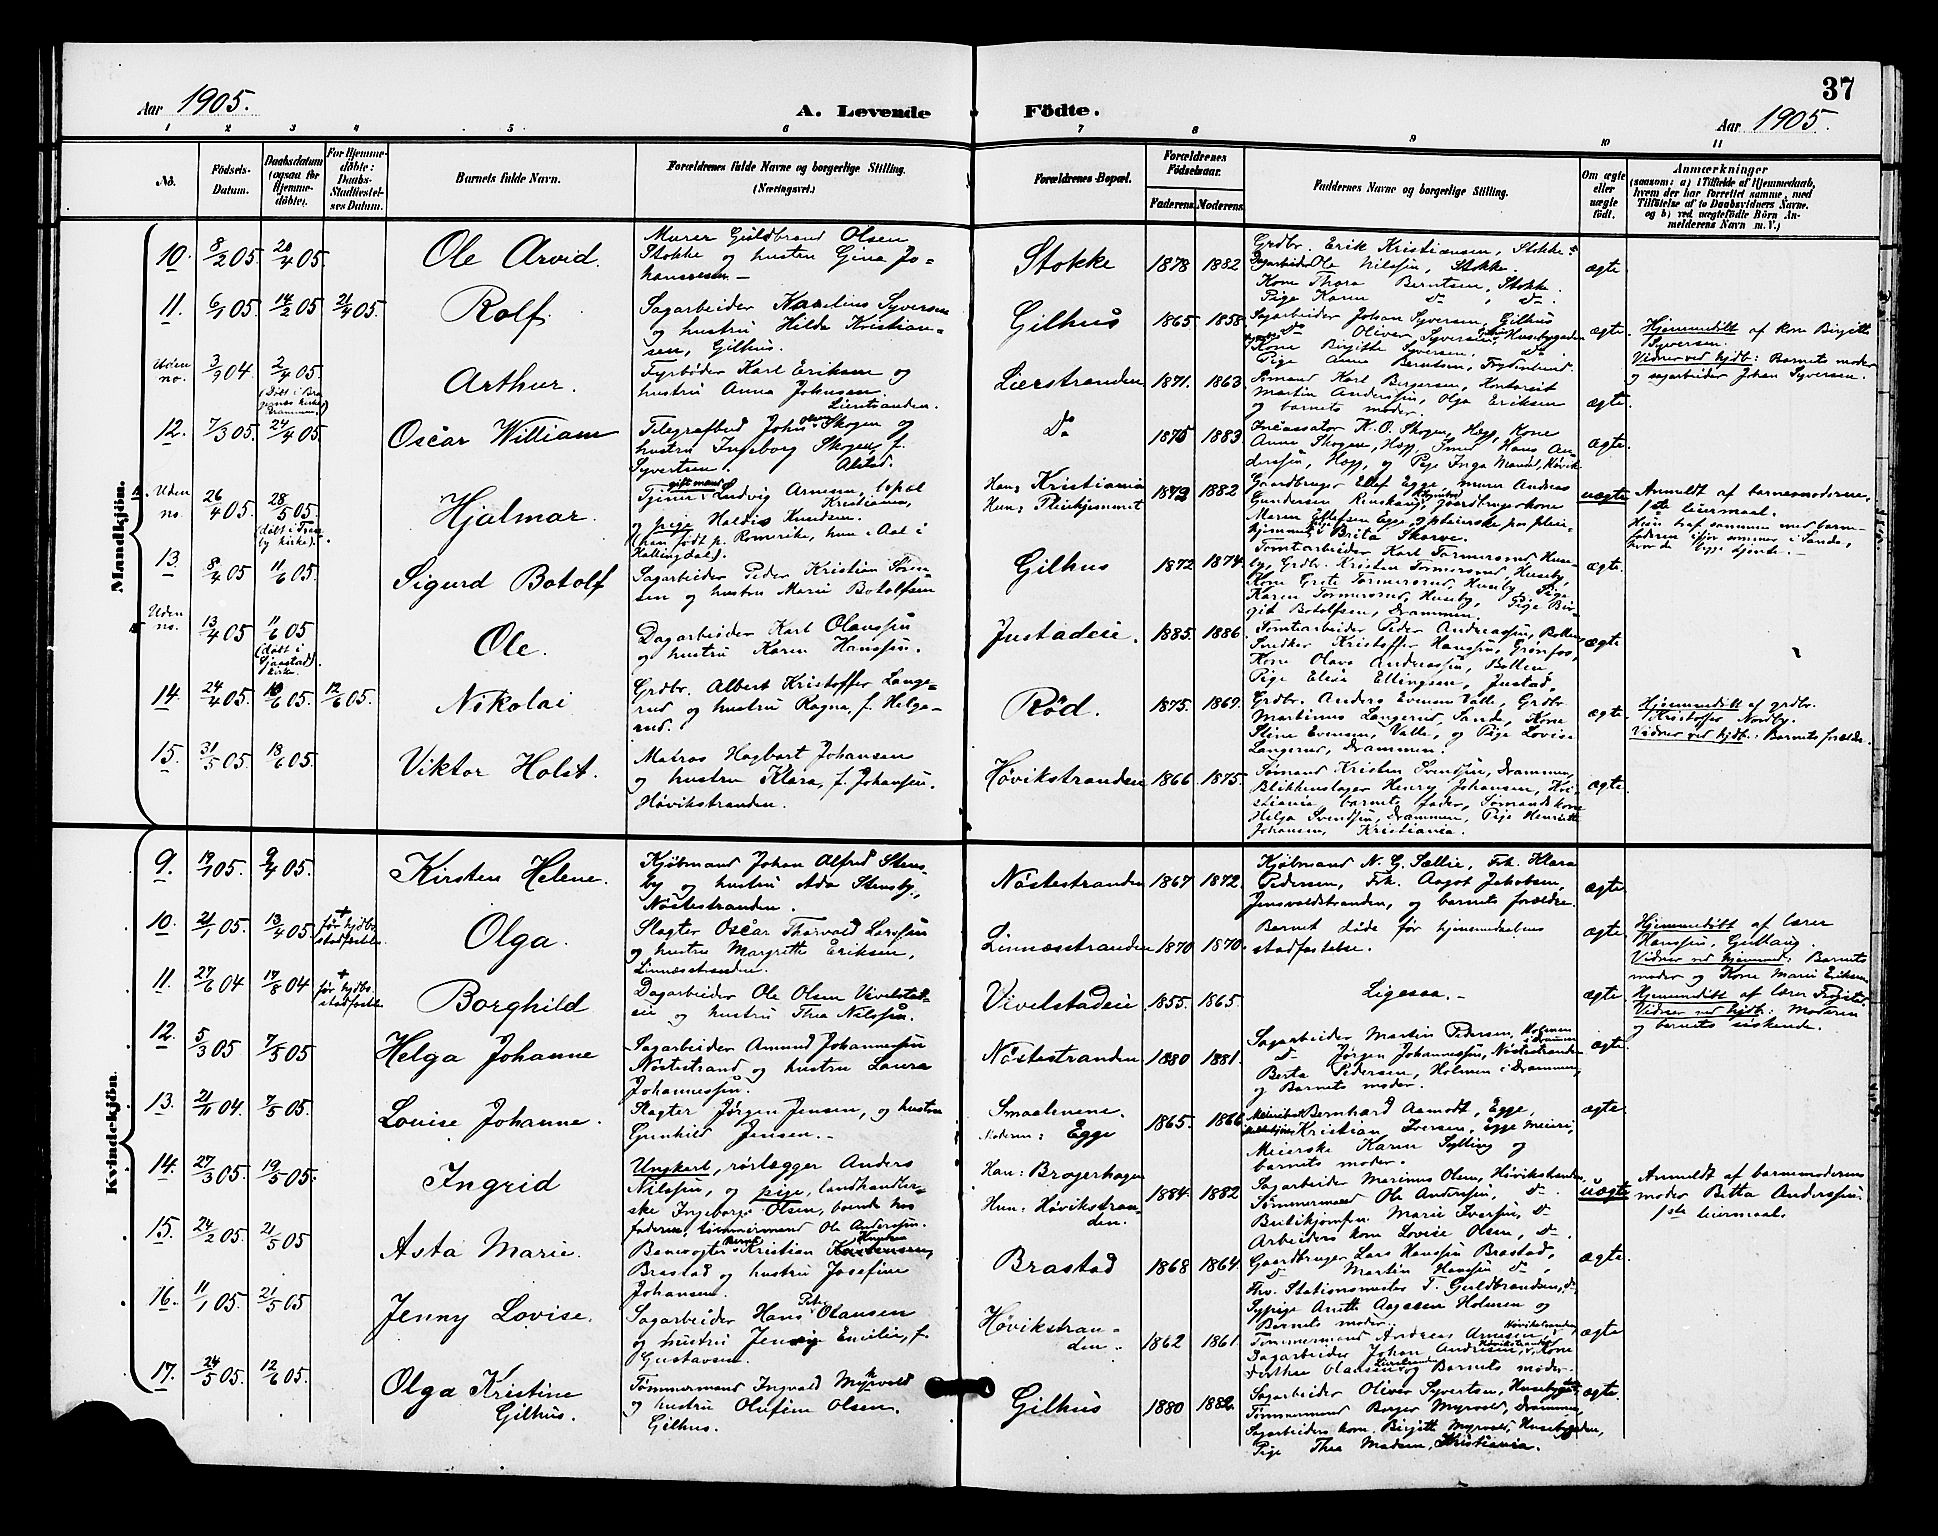 37
Aar 1905. A. Levende Födte. Aar 1905.
1 2 3 4 5 6 7 8 9 10 11
No. Födsels-Datum. Daabsdatum (ogsaa for Hjemmedöbte). For Hjemmedöbte: Daabs-Stadfæstelses Datum. Barnets fulde Navn. Forældrenes fulde Navne og borgerlige Stilling. (Næringsvei.) Forældrenes Bopæl. Forældrenes Födselsaar. Faderens Moderens Faddernes Navne og borgerlige Stilling. Om ægte eller uægte födt. Anmærkninger (saasom: a) i Tilfælde af Hjemmedaab, hvem der har forrettet samme, med Tilföielse af to Daabsvidners Navne. og b) ved uægtefödte Börn Anmelderens Navn m. V.)
Mandkjön.
10. 8/2 05. 24/4 05. Ole Arvid.
Murer Guldbrand Olsen
Stokke og hustru Gina Jo-
hannesen —
Stokke 1878 1882
Grdbr. Erik Kristiansen, Stokke.
Dagarbeider Ole Nilssen, Stokke.
Kone Thora Berntsen, Stokke.
Pige Karen do, do.
ægte
11. 6/1 05. 14/2 05 21/4 05. Rolf.
Sagarbeider Karelius Syversen
og hustru Hilda Kristian-
sen, Gilhus.
Gilhus 1865 1858.
Sagarbeider Johan Syversen, Gilhus
do Oliver Syversen, Husebygaden
Kone Birgitte Syversen, do
Pige Anna Berntsen,
ægte.
Hjemmedöbt af kone Birgitte
Syversen.
Vidner ved hjdt: Barnets moder
og sagarbeider Johan Syversen.
Uden no. 3/9 04. 2/4 05 (Döbt i Bragernes kirke Drammen.) Arthur.
Fyrböder Karl Eriksen og
hustru Anna Johnsen
Lierstranden.
Lierstranden 1871. 1863
Sömand Karl Birgersen, Kontorist
Martin Anderssen, Olga Eriksen
og barnets moder.
ægte.
12. 7/3 05. 24/4 05. Oscar William
Telegrafbud John Skogen og
hustru Ingeborg Skogen, f.
Syvertsen.
Do 1875 1883
Incassator K. O. Skogen, Hægg, Kone
Anna Skogen, Hægg, Smed Hans An-
derssen, Hægg, og Pige Inga
ægte.
Uden no. 26/4 05. 28/5 05. (döbt i Tranby kirke). Hjalmar.
gift mand
Tjener Ludvig Arnesen, bopæl
Kristiania,
og pige Haldis Knudsen.
(han födt p. Romerike, hun i Aal i
Hallingdal).
Han: Kristiania
Hun: Pleiehjemmet
1873 1882
Gaardbruger Ellef Egge, murer Andreas
Gundersen Gaardbrugerkone
Maren Ellefsen Egge,
hjemmet, Brita Skorve.
uægte
Anmeldt af barnemoderen,
1ste leiermaal.
Hun traf sammen med barne-
faderen ifjor sommer i Sande,
hvor de begge tjente. —
13. 8/4 05 11/6 05. Sigurd Botolf
Sagarbeider Peder Kristian
sen og hustru Marie Botolfsen
Gilhus 1872 1874.
Tomtarbeider Karl Tormersrud, Huse-
by, Grdbr. Kristen Tormersrud, Huseby,
Kone Grete Tormersrud, Huseby, Pige
Karen Tormersrud, Huseby, Pige Bir-
git Botolfsen, Drammen.
ægte.
Uden no. 13/4 05 11/6 05 (döbt i Sjaastad kirke. Ole.
Dagarbeider Karl Olaussen
og hustru Karen Hanssen.
Justadeie. 1885. 1886.
Tomtarbeider Peder Andreassen, Bolken
Snedker Kristoffer Hanssen, Grönfos,
Kone Olava Andreassen, Bolken
Pige Elise Ellingsen, Justad.
ægte.
14. 24/4 05. 10/6 05. 12/6 05. Nikolai
Grdbr. Albert Kristoffer Lange-
rud og hustru Ragna, f. Helge-
rud.
Röd. 1875. 1869.
Grdbr. Anders Evensen Valle, Grdbr.
Martinus Langerud, Sande, Kone
Stine Evensen, Valle, og Pige Lovise
Langerud, Drammen.
ægte.
Hjemmedöbt af grdbr.
Kristoffer Nordby.
Vidner ved hjdt.: Barnets forældre.
15. 31/5 05. 18/6 05. Viktor Holst.
Matros Hagbart Johansen
og hustru Klara, f. Johansen.
Hövikstranden.
Hövikstranden 1866 1875.
Sömand Kristen Svendsen, Drammen,
Blikkenslager Henry Johansen, Kri-
stiania, barnets fader, Sömandskone
Helga Svendsen, Drammen, Pige Henriette
Johansen, Kristiania.
ægte.
Kvindekjön.
9. 19/1 05. 9/4 05. Kirsten Helene.
Kjöbmand Johan Alfred Stens-
by og hustru Ada Stensby,
Nöstestranden.
Nöstestranden 1867 1872.
Kjöbmand N. G. Sællie, Frk. Klara
Pedersen, Frk. Aagot Jakobsen,
Jensvoldstranden, og barnets forældre.
ægte.
10. 21/1 05. 13/4 05. + för hjdbs. stadfæstelse Olga.
Slagter Oscar Thorvald Larssen
og hustru Margrethe Eriksen,
Linnæsstranden.
Linnæsstranden 1870 1870.
Barnet döde för hjemmedaabens
stadfæstelse.
ægte.
Hjemmedöbt af lærer
Hanssen, Gullaug.
Vidner ved hjemmed.: Barnets
moder og Kone Marie Eriksen
11. 27/6 04 17/8 04 + för hjdbs. stadfæstelse Borghild
Dagarbeider Ole Olsen Vivelstad-
eie og hustru Thea Nilssen.
Vivelstadeie 1855. 1865.
Ligesaa. —
ægte.
Hjemmedöbt af lærer
Vidner ved hjdt: Moderen
og barnets söskende.
12. 5/3 05 7/5 05. Helga Johanne
Sagarbeider Amund Johannessen
Nöstestrand og hustru Laura
Johannessen.
Nöstestranden 1880 1881.
Sagarbeider Martin Pedersen, Holmen i Drammen
do Jörgen Johannessen, Nöstestranden
Berta Pedersen, Holmen i Drammen,
og Barnets moder.
ægte.
13. 21/11 04. 7/5 05. Lovise Johanne.
Slagter Jörgen Jensen, og hustru
Gunhild Jensen. —
Smaalenene.
Moderen: Egge
1865. 1866
Bernhard Aamodt, Egge,
Kristian Iversen, Egge Meieri,
Meierske Karen Sylling og
barnets moder.
ægte.
14. 27/3 05. 19/5 05. Ingrid
Ungkarl, rörlægger Anders
Nilssen, og pige, landhandler-
ske Ingeborg Olsen, boende hos
faderen, tömmermand Ole Anderssen.
Han: Bragerhagen
Hun: Hövikstran-
den.
1884. 1882
Sagarbeider Marinus Olsen, Hövikstranden,
Tömmermand Ole Anderssen, do.
Butikjomfru Marie Iverssen, do
Arbeiders kone Lovise Olsen, do
uægte
Anmeldt af barnemoderens
moder Betta Anderssen.
1ste leiermaal.
15. 24/2 05. 21/5 05 Asta Marie.
Banevogter Kristian
Brastad og hustru Josefine
Johansen.
Brastad 1868 1864
Gaardbruger Lars Hanssen Brastad,
do Martin Hanssen do,
Frv. Stationsmester T. Guldbrandsen, do.
Sypige Anette Aagesen Holmen og
Barnets moder.
ægte.
16. 11/1 05. 21/5 05 Jenny Lovise.
Sagarbeider Hans Peter Olausen
og hustru Jenny Emilie, f.
Gustavsen.
Hövikstran-
den. 1862 1861.
Tömmermand Andreas Arnesen, Hövikstranden,
Dagarbeider Johan Andresen, Hövikstranden, Kone
Dorthea Olausen Lierstranden og Barnets moder.
ægte
17. 24/5 05. 12/6 05. Olga Kristine
Gilhus.
Tömmermand Ingvald Myrvold
og hustru Olufine Olsen.
Gilhus.
Gilhus 1880 1882.
Sagarbeider Oliver Syvertsen, Husebygaden,
Tömmermand Birger Myrvold, Drammen,
Sagarbeiders kone Birgitte Myrvold, Husebygaden,
Pige Thea Madsen, Kristiania.
ægte.